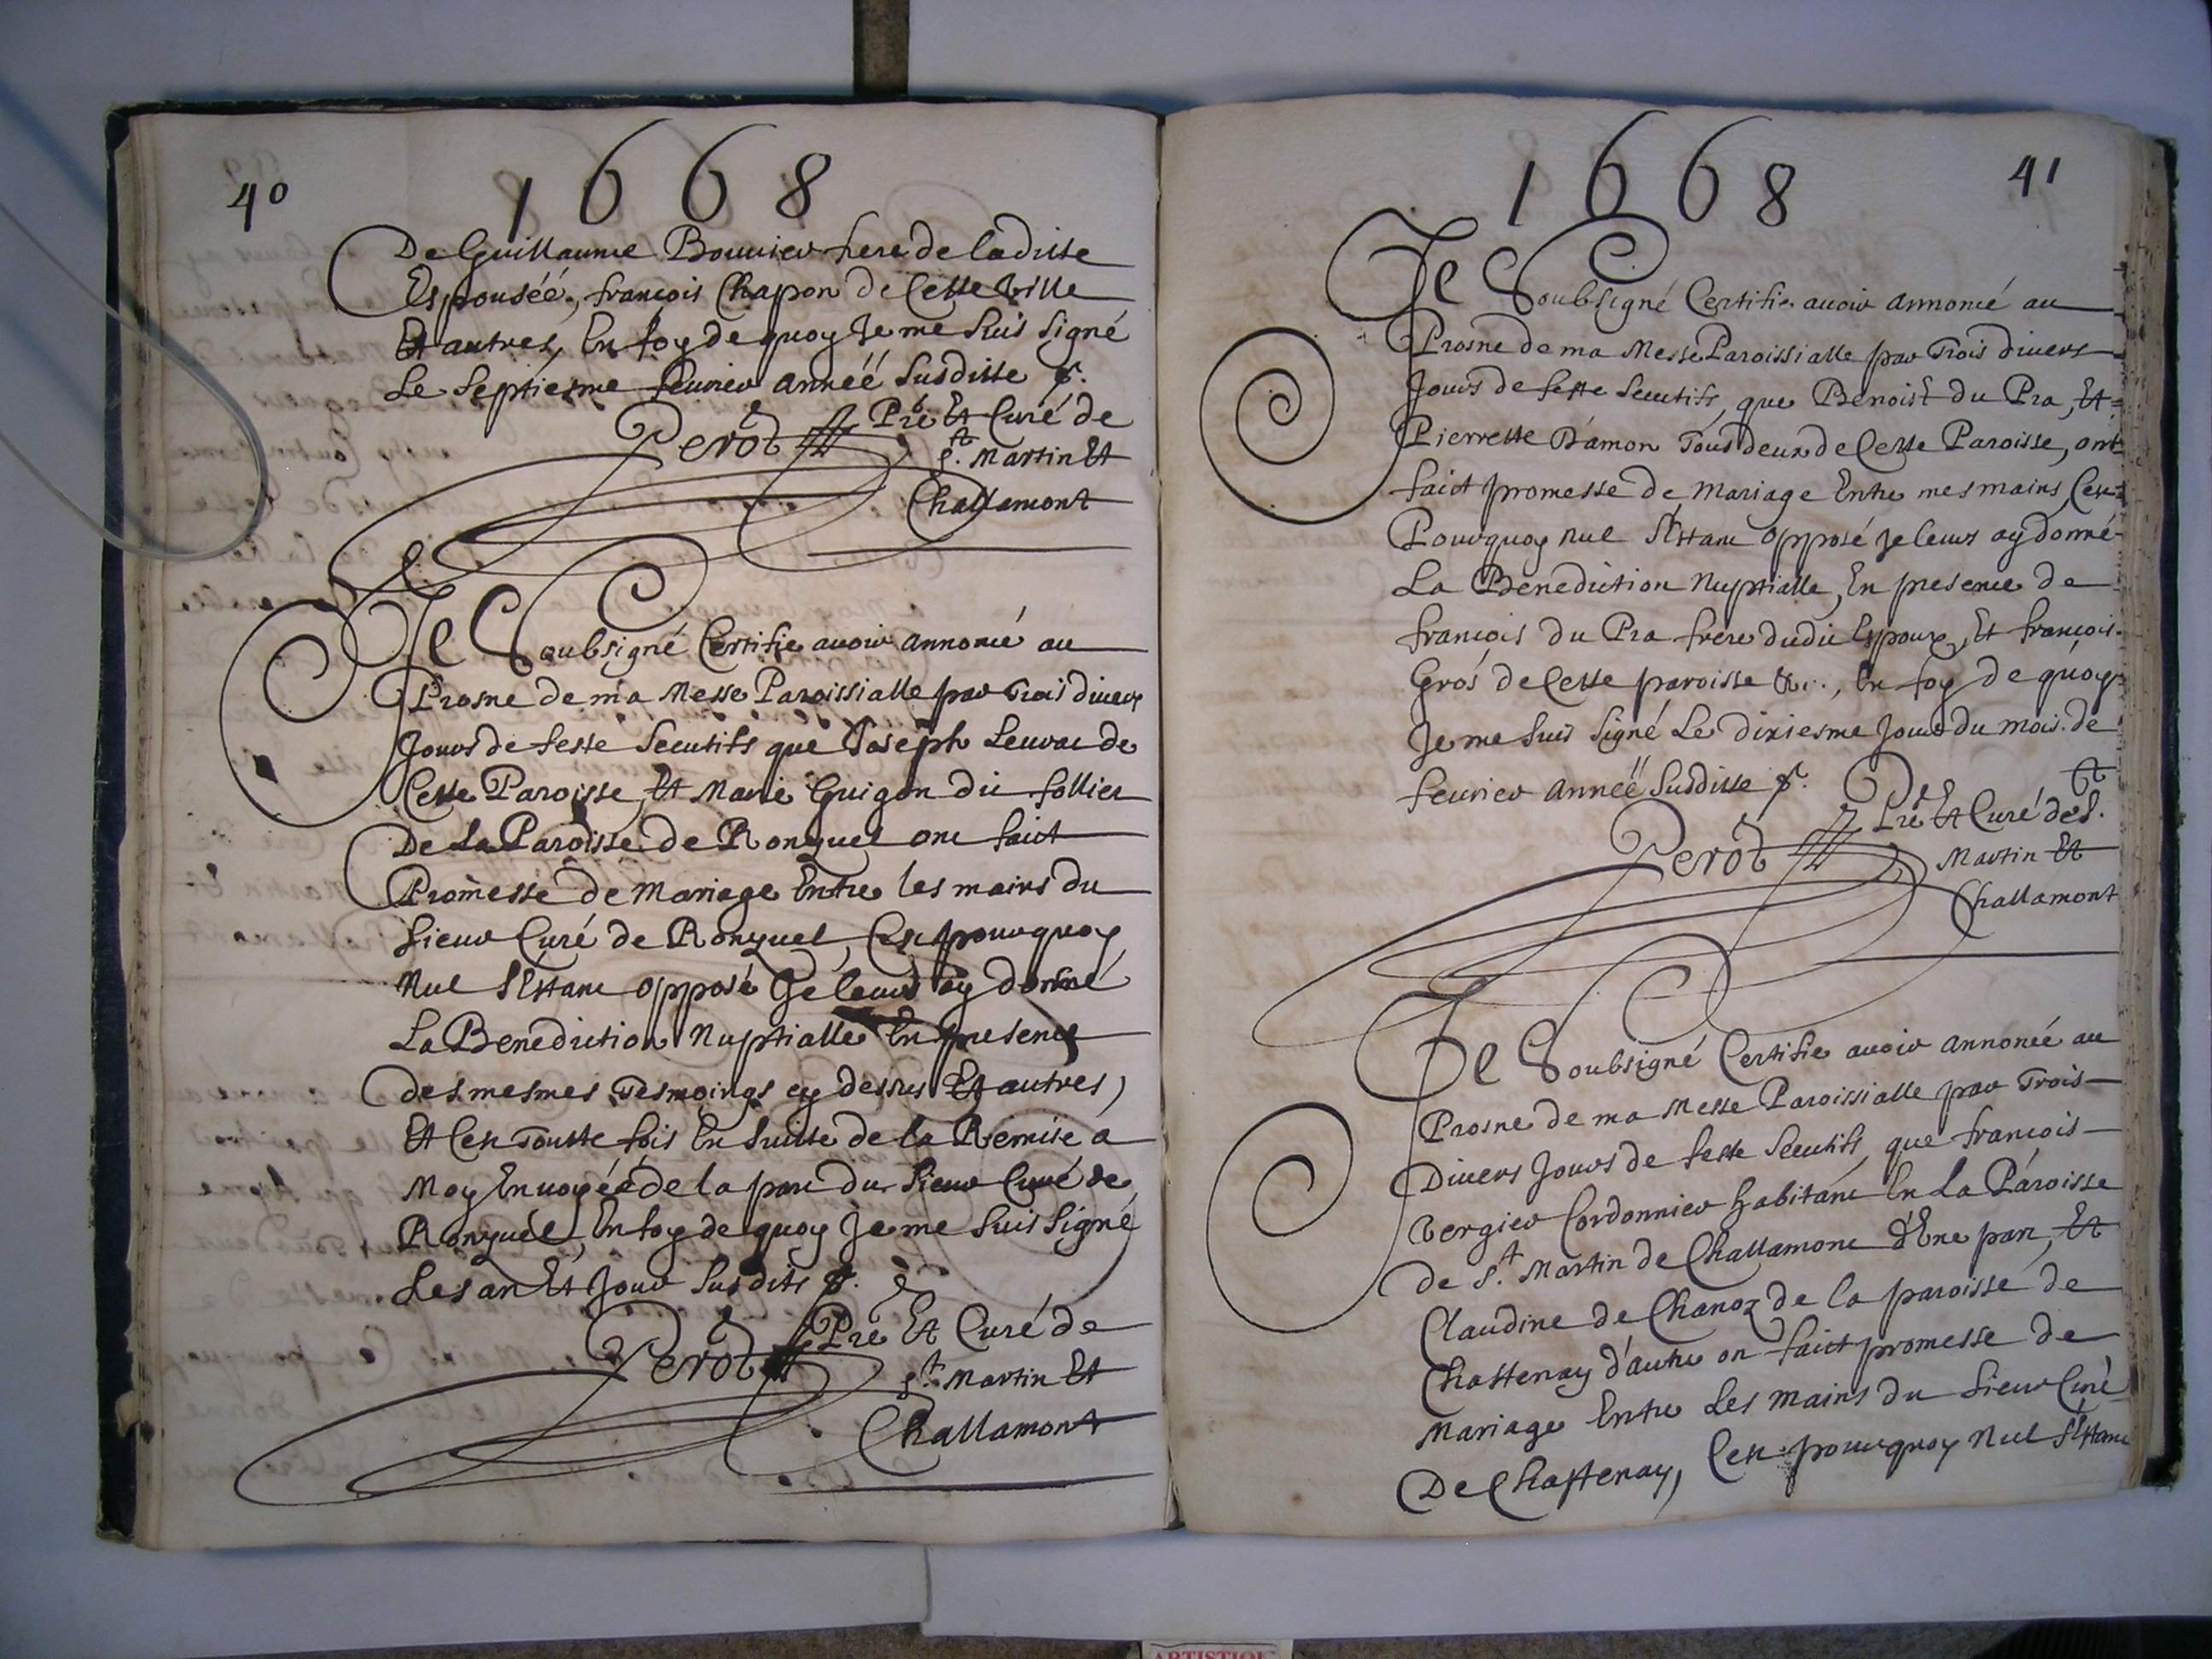 40
1668
De Guillaume Bouvier frere de laditte
Espouséé, françois Chapon de Cette Ville
Et autres, En foy de quoy Je me suis signé
Le septiesme feuvrier annéé susditte
Perod Pre Et Curé de
St. Martin Et
Challamont
Je Soubsigné Certifie avoir annoncé au
Prosne de ma Messe Paroissialle par Trois divers
Jours de feste secutifs que Joseph Leuvac de
Cette Paroisse, Et Marie Guigon du follier
De La Paroisse de Ronzuel ont faict
Promesse de Mariage Entre les mains du
Sieur Curé de Ronzuel, Cest pourquoy
Nul s'Estant opposé Je leurs ay donné
La Benediction Nuptialle En presence
des mesmes Tesmoings cy dessus Et autres,
Et Cest Toutte fois En suitte de la Remise a
Moy Envoyéé de la part du Sieur Curé de
Ronzuel, En foy de quoy Je me suis signé
Les an Et Jour susdits
Perod Pre Et Curé de
St. Martin Et
Challamont
1668
41
Je Soubsigné Certifie avoir annoncé au
Prosne de ma Messe Paroissialle par Trois divers
Jours de feste secutifs, que Benoist du Pra, Et
Pierrette Damon Tous deux de Cette Paroisse, ont
faict promesse de Mariage Entre mes mains, Cest
Pourquoy nul s'Estant opposé Je leurs ay donné
La Benediction Nuptialle, En presence de
françois du Pra frere dudit Espoux, Et françois
Gros de Cette paroisse &c., En foy de quoy
Je me suis signé Le dixiesme Jour du mois de
feuvrier annéé susditte
Perod Pre Et Curé de St.
Martin Et
Challamont
Je Soubsigné Certifie avoir annoncé au
Prosne de ma Messe Paroissialle par Trois
Divers Jours de feste secutifs, que françois
Vergier Cordonnier habitant En La Paroisse
de St. Martin de Challamont d'Une part, Et
Claudine de Chanoz de la paroisse de
Chastenay d'autre on faict promesse de
Mariage Entre Les mains du Sieur Curé
De Chastenay, Cest pourquoy Nul s'Estant
ARTISTIQUE